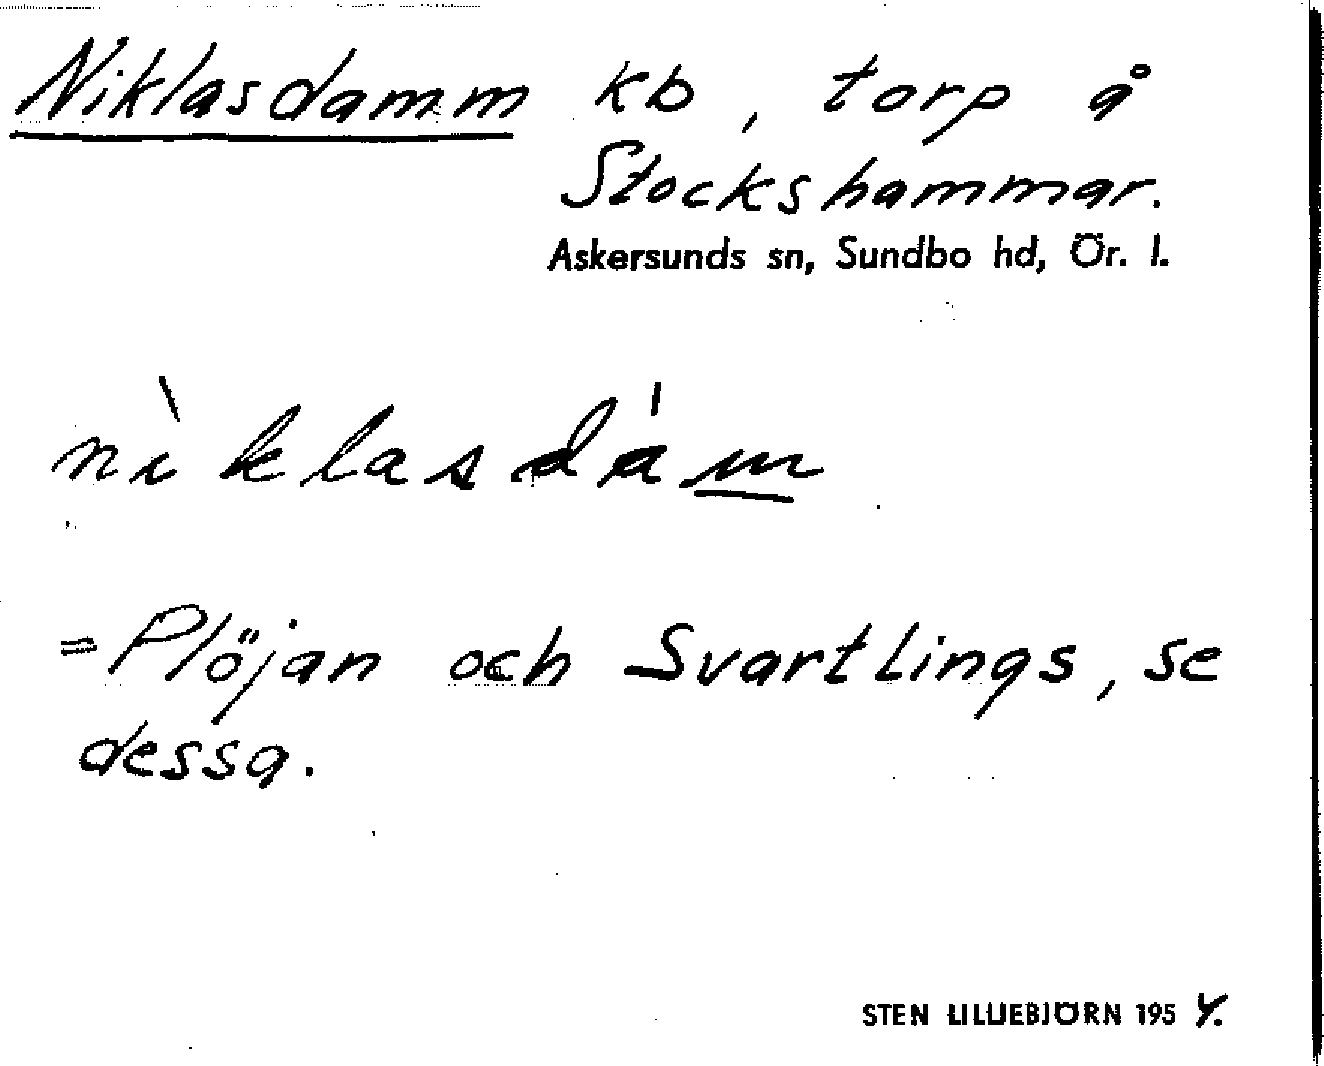 Niklasdamm kb, torp å
Stockshammar.
Askersunds sn, Sundbo hd, Ör. l.
nìklasdám
= Plöjan och Svartlings, se
dessa.
STEN LILLIEBJÖRN 1954.